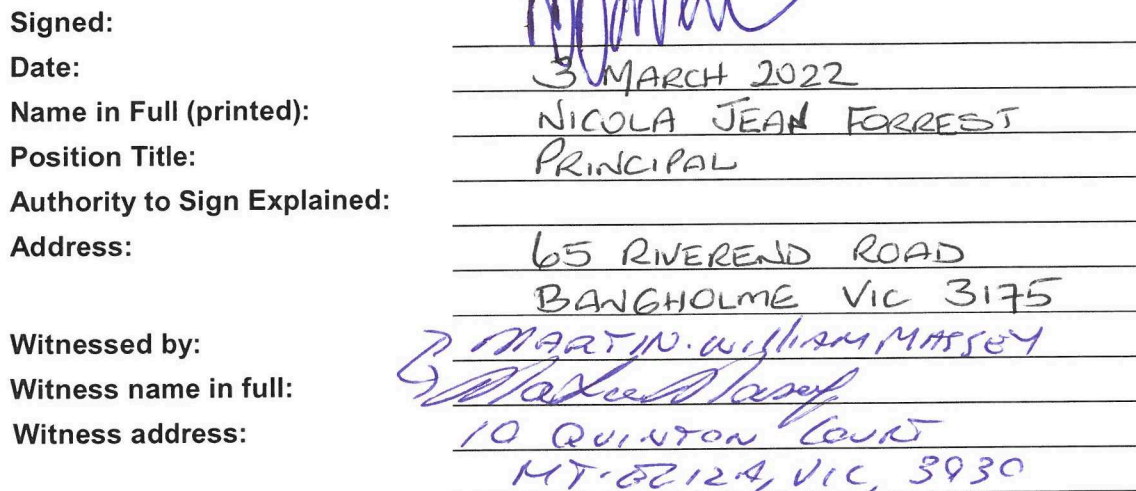 Signed:
Date: 3 MARCH 2022
Name in Full (printed): NICOLA JEAN FORREST
Position Title: PRINCIPAL
Authority to Sign Explained:
Address: 65 RIVEREND ROAD
BANGHOLME VIC 3175
Witnessed by: MARTIN. WILLIAM MASSEY
Witness name in full:
Witness address: 10 QUINTON COURT
MT. ELIZA, VIC, 3930